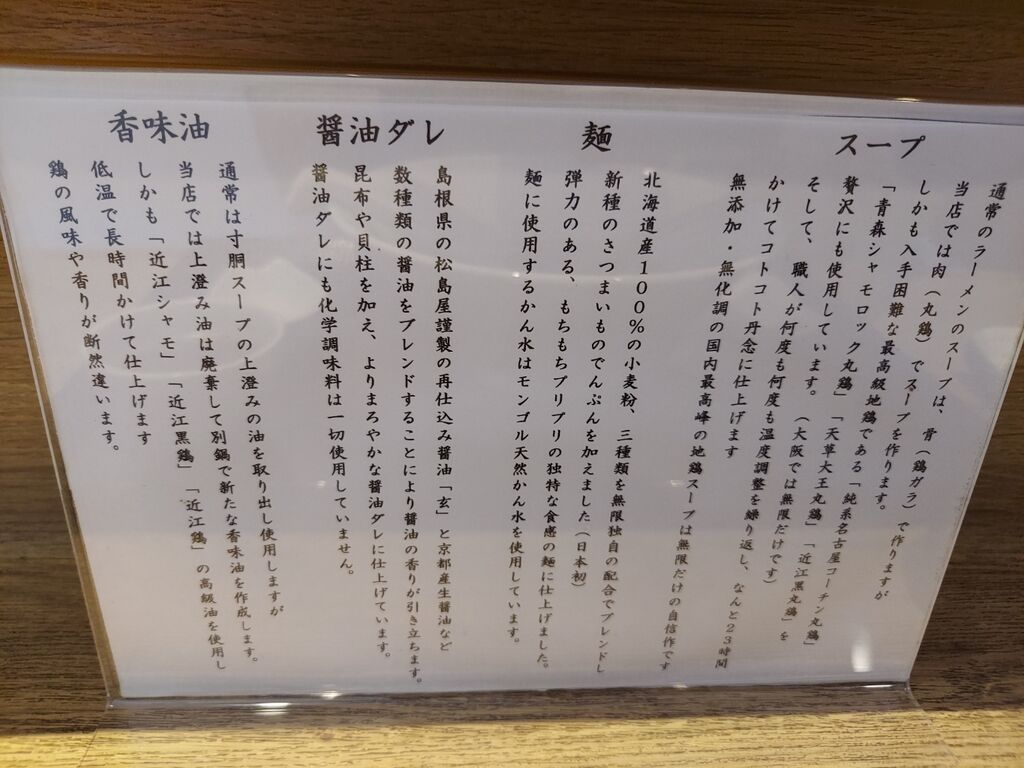 スープ
通常のラーメンのスープは、骨（鶏ガラ）で作りますが
当店では肉（丸鶏）でスープを作ります。
しかも入手困難な最高級地鶏である「純系名古屋コーチン丸鶏」
「青森シャモロック丸鶏」「天草大王丸鶏」「近江黒丸鶏」を
贅沢にも使用しています。（大阪では無限だけです）
そして、職人が何度も何度も温度調整を繰り返し、なんと２３時間
かけてコトコト丹念に仕上げます
無添加・無化調の国内最高峰の地鶏スープは無限だけの自信作です
麺
北海道産１００％の小麦粉、三種類を無限独自の配合でブレンドし
新種のさつまいものでんぷんを加えました（日本初）
弾力のある、もちもちプリプリの独特な食感の麺に仕上げました。
麺に使用するかん水はモンゴル天然かん水を使用しています。
醤油ダレ
島根県の松島屋謹製の再仕込み醤油「玄」と京都産生醤油など
数種類の醤油をブレンドすることにより醤油の香りが引き立ちます。
昆布や貝柱を加え、よりまろやかな醤油ダレに仕上げています。
醤油ダレにも化学調味料は一切使用していません。
香味油
通常は寸胴スープの上澄みの油を取り出し使用しますが
当店では上澄み油は廃棄して別鍋で新たな香味油を作成します。
しかも「近江シャモ」「近江黒鶏」「近江鶏」の高級油を使用し
低温で長時間かけて仕上げます
鶏の風味や香りが断然違います。